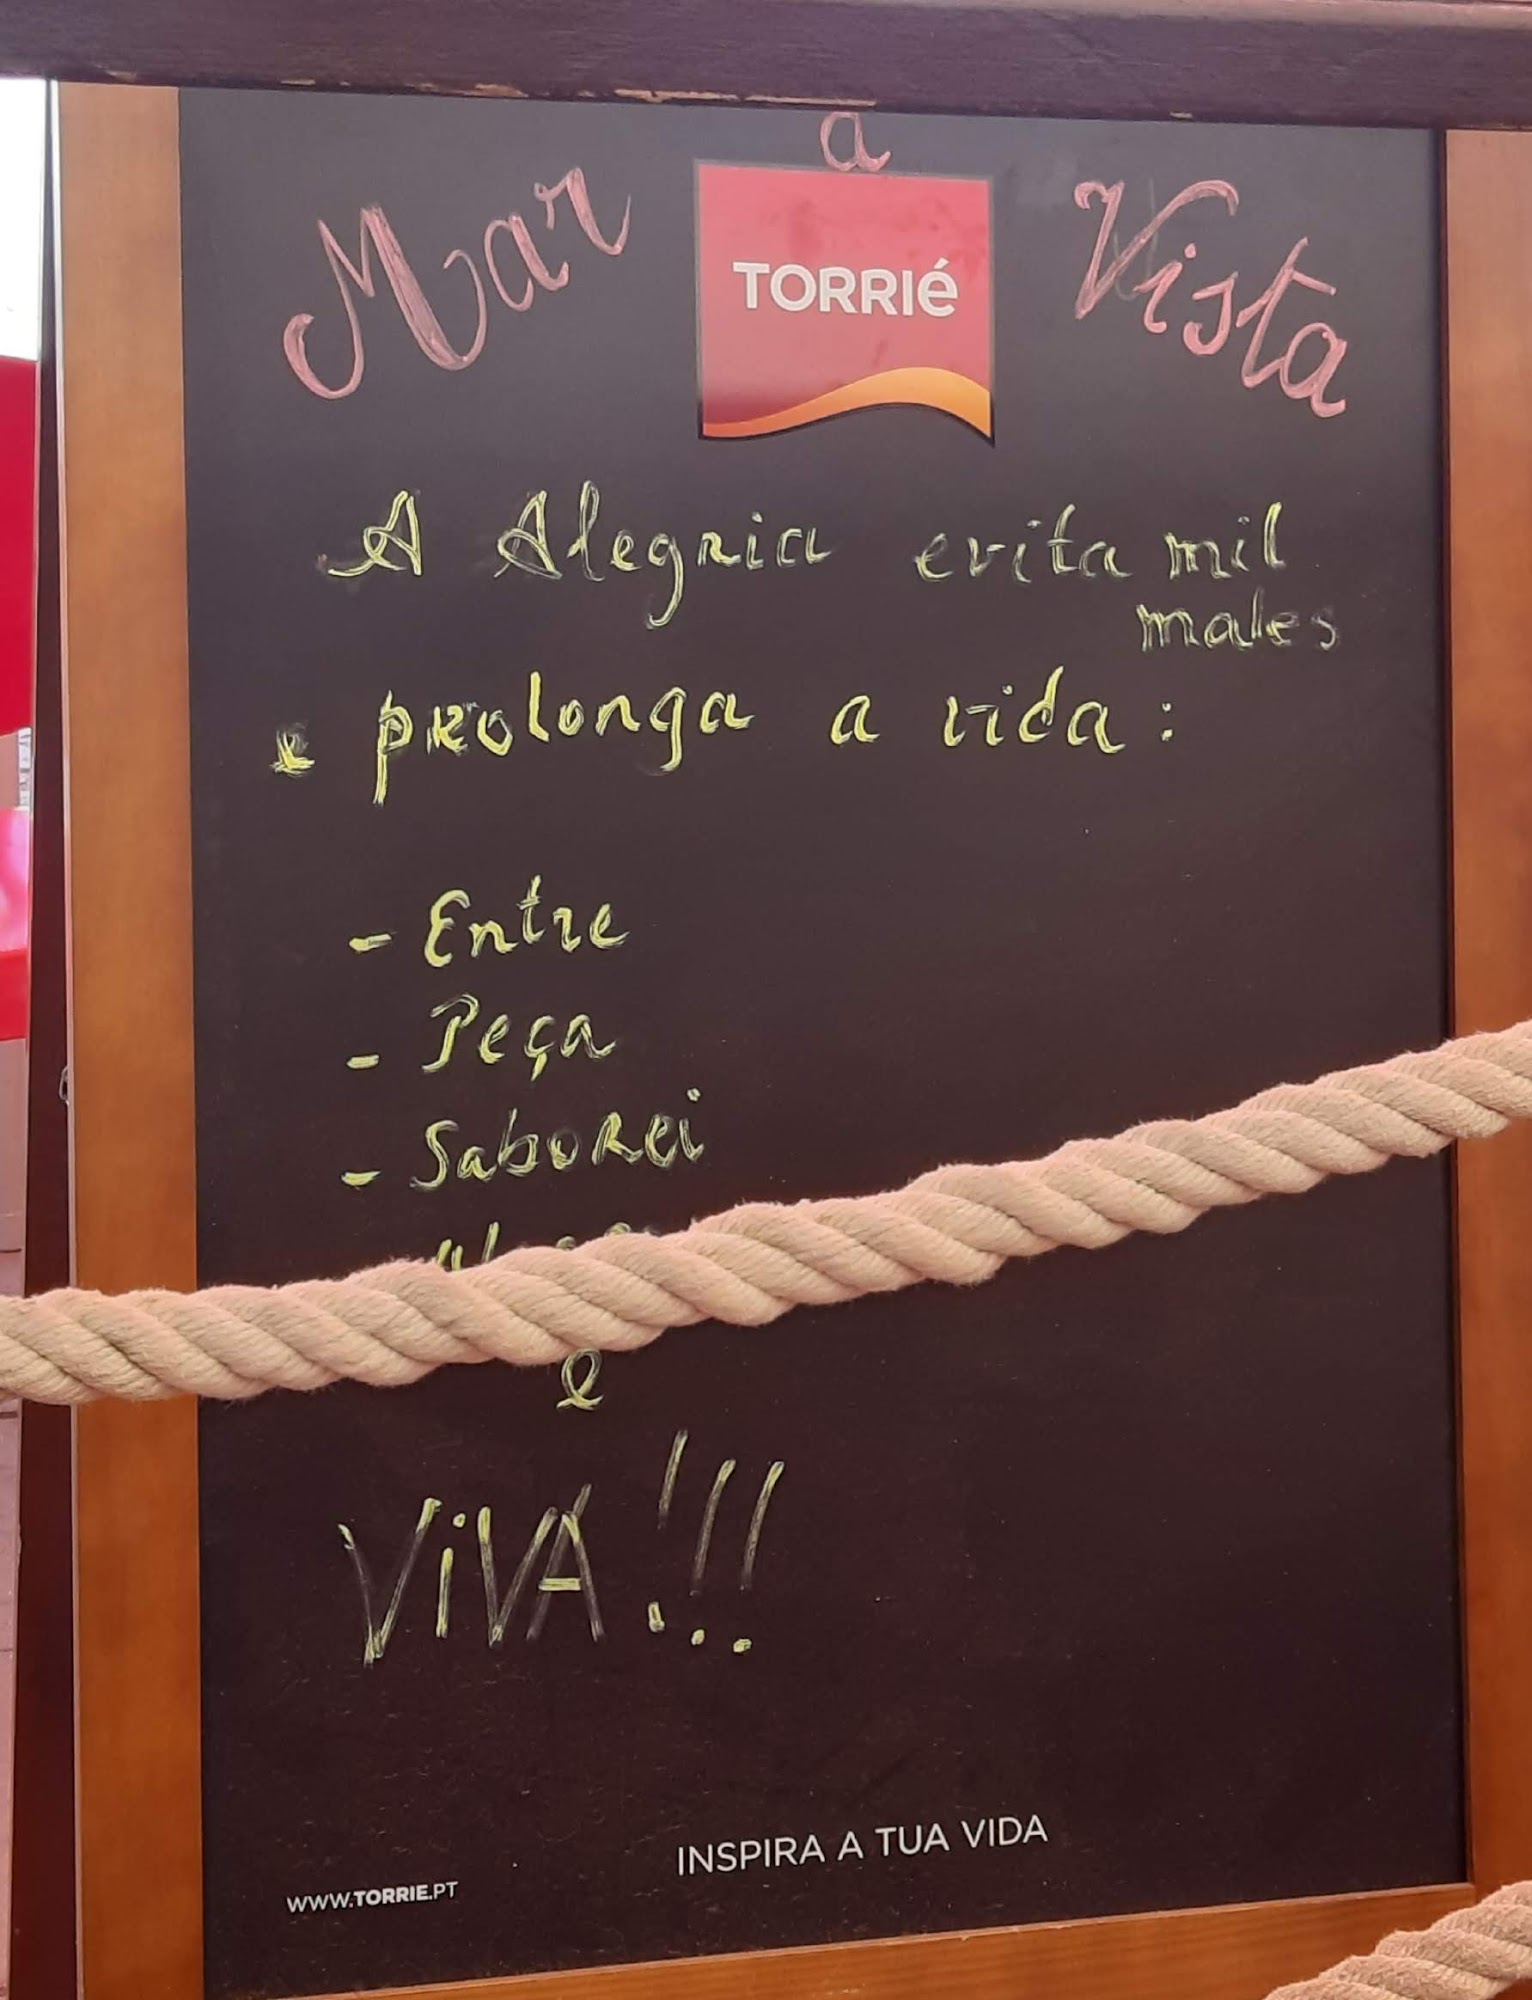 Mar a Vista
TORRIÉ
A Alegria evita mil
males
e prolonga a vida:
- Entre
- Peça
- Saborei
e
ViVA!!!
INSPIRA A TUA VIDA
WWW.TORRIE.PT